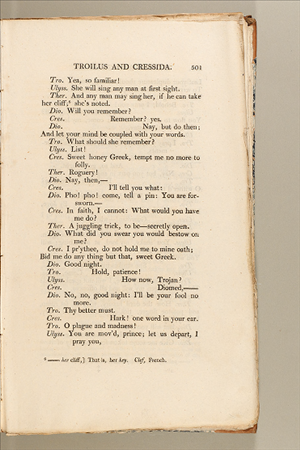 TROILUS AND CRESSIDA. 501
Tro. Yea, so familiar!
Ulyss. She will sing any man at first sight.
Ther. And any man may sing her, if he can take
her cliff;⁸ she's noted.
Dio. Will you remember?
Cres. Remember? yes.
Dio. Nay, but do then;
And let your mind be coupled with your words.
Tro. What should she remember?
Ulyss. List!
Cres. Sweet honey Greek, tempt me no more to
folly.
Ther. Roguery!
Dio. Nay, then,—
Cres. I'll tell you what:
Dio. Pho! pho! come, tell a pin: You are for-
sworn.—
Cres. In faith, I cannot: What would you have
me do?
Ther. A juggling trick, to be—secretly open.
Dio. What did you swear you would bestow on
me?
Cres. I pr'ythee, do not hold me to mine oath;
Bid me do any thing but that, sweet Greek.
Dio. Good night.
Tro. Hold, patience!
Ulyss. How now, Trojan?
Cres. Diomed,——
Dio. No, no, good night: I'll be your fool no
more.
Tro. Thy better must.
Cres. Hark! one word in your ear.
Tro. O plague and madness!
Ulyss. You are mov'd, prince; let us depart, I
pray you,
⁸ —— her cliff;] That is, her key. Clef, French.